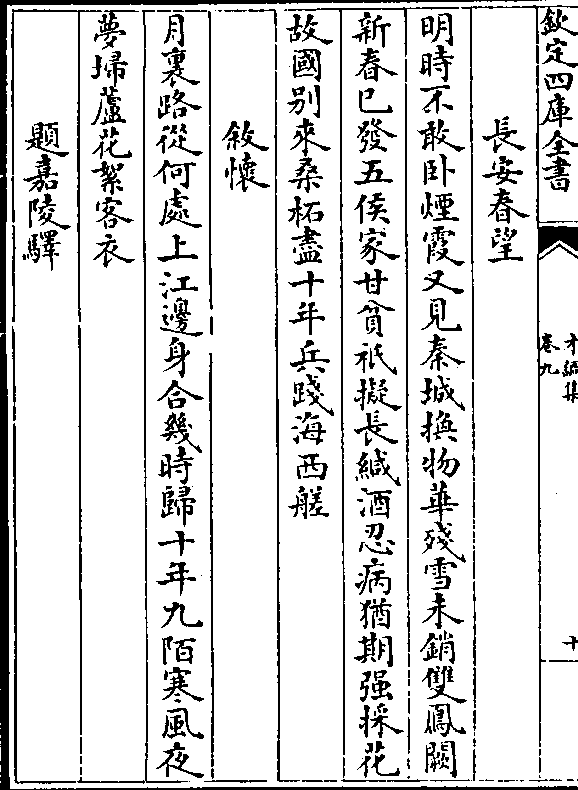 欽定四庫全書
才調集
卷九
十
長安春望
明時不敢卧煙霞又見秦城換物華殘雪未銷雙鳳闕
新春已發五侯家甘貧祗擬長緘酒忍病猶期强採花
故國别來桑柘盡十年兵踐海西艖
敘懷
月裏路從何處上江邊身合幾時歸十年九陌寒風夜
夢掃蘆花絮客衣
題嘉陵驛